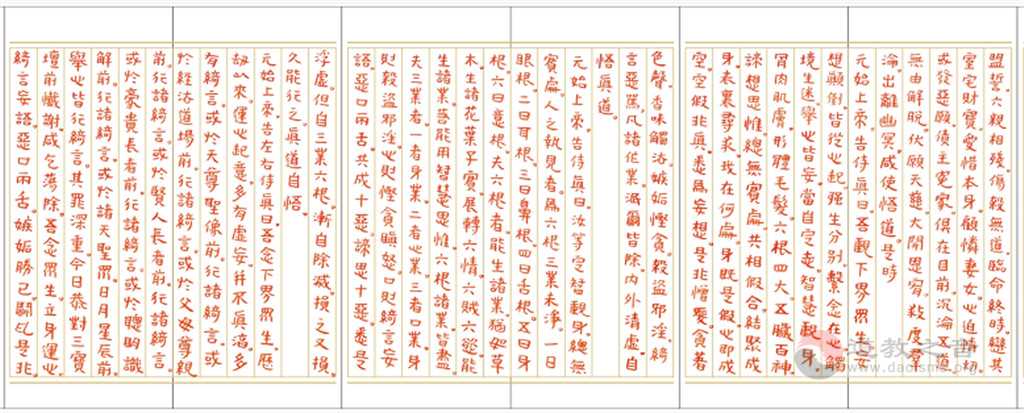 盟誓六親相殘傷殺無道臨命終時戀其
室宅財寶愛惜本身顧憐妻女心迫情切
或發惡願債主冤家俱在目前沉淪五道
無由解脫伏願天慈大開恩宥救度羣
淪出離幽冥咸使悟道是時
元始上帝告侍真曰吾觀下界眾生
想顛倒皆從心起強生分別繫念在心觸
境生迷舉心皆妄當自定志智慧觀身
胃肉肌膚形體毛髮六根四大五臟百神
諦想思惟總無實處共相假合結聚成
身表裏尋求我在何處身既是假心即成
空空假非真悉為妄想是非憎愛貪著
色聲香味觸法嫉妬慳貪殺盜邪淫綺
言惡罵凡諸作業滅爾皆除內外清虛自
悟真道
元始上帝告侍真曰汝等定智觀身總無
實處人之執見者為六根三業未淨一曰
眼根二曰耳根三曰鼻根四曰舌根五曰身
根六曰意根夫六根者能生諸業猶如草
木生諸花葉子實展轉六情六賊六慾能
生諸業若能用智慧思惟六根諸業皆盡
夫三業者一者身業二者心業三者口業身
則殺盜邪淫心則慳貪瞋怒口則綺言妄
語惡口兩舌共成十惡諦思十惡悉是
浮虛但自三業六根漸自除滅損之又損
久能行之真道自悟
元始上帝告左右侍真曰吾念下界眾生歷
劫以來運心起意多有虛妄并不真多
有綺言或於天尊聖像前行諸綺言或
於經法道場前行諸綺言或於父母尊親
前行諸綺言或於賢人長者前行諸綺言
或於豪貴長者前行諸綺言或於聰明識
解前行諸綺言或於諸天聖眾日月星辰前
舉心皆行綺言其罪深重今日恭對三寶
壇前懺謝咸乞蕩除吾念眾生立身運心
綺言妄語惡口兩舌嫉妬勝己鬪乱是非
道教之音
www.daoisms.org